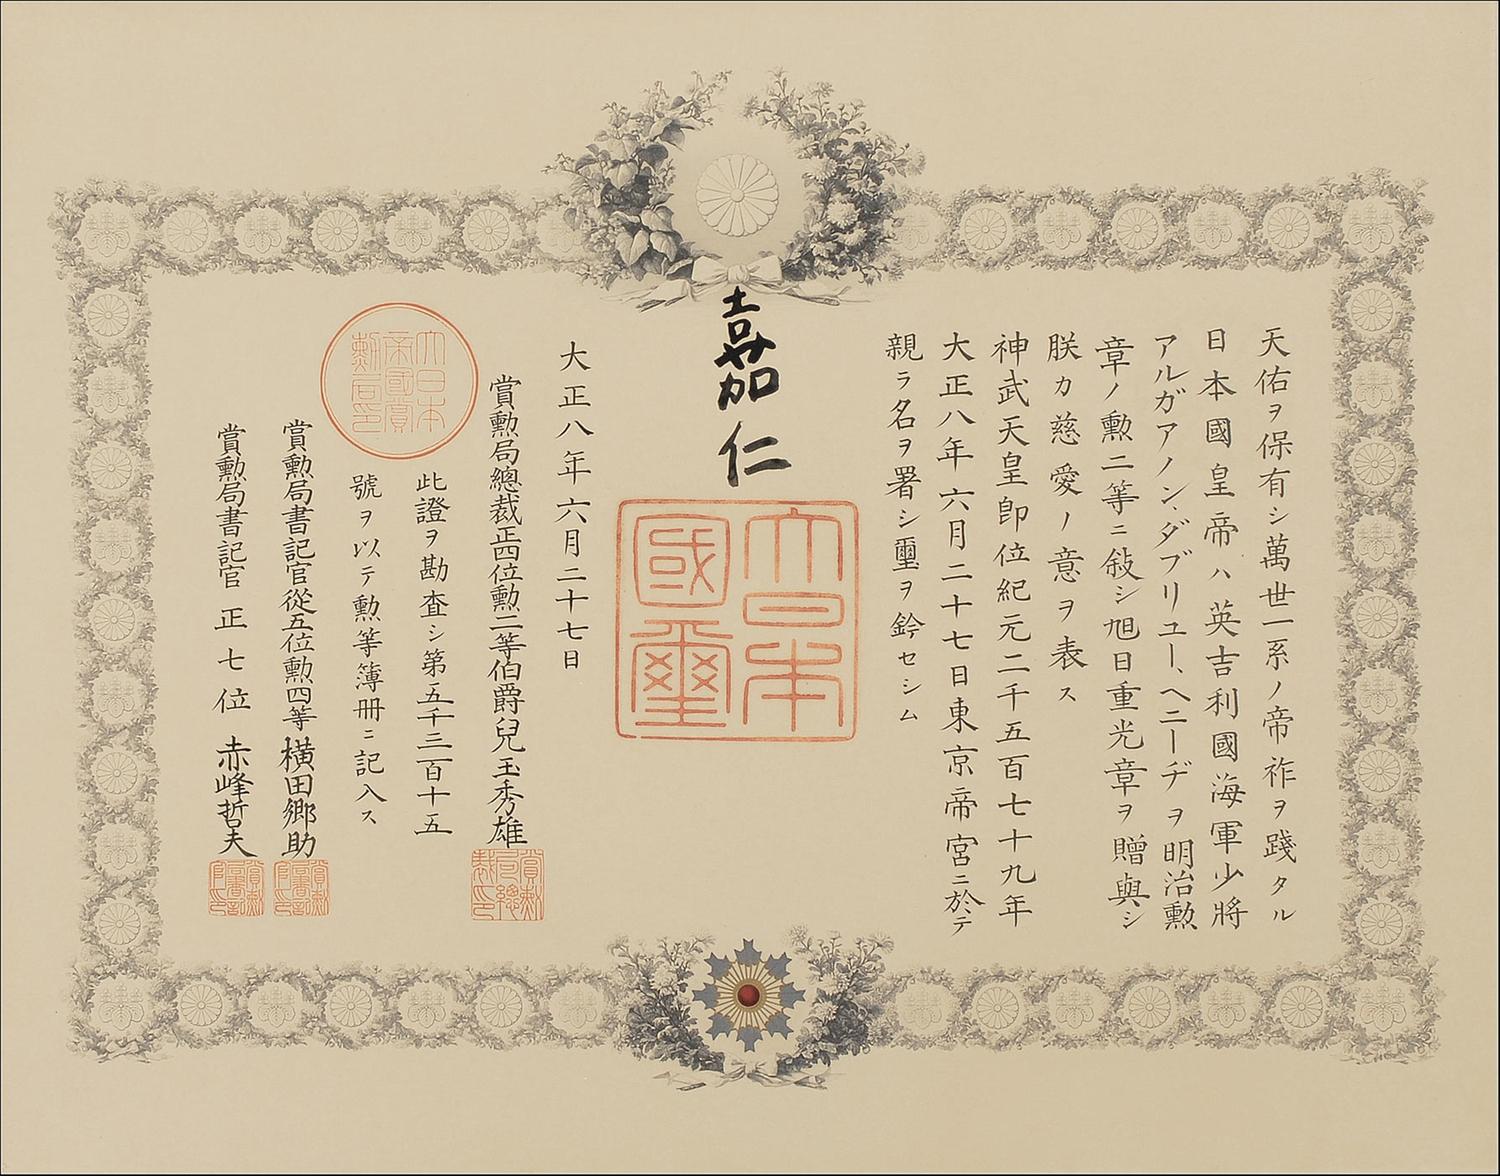 天佑ヲ保有シ萬世一系ノ帝祚ヲ踐タル
日本國皇帝ハ英吉利國海軍少將
アルガアノン、ダブリユー、ヘニーヂヲ明治勲
章ノ勲二等ニ敍シ旭日重光章ヲ贈與シ
朕カ慈愛ノ意ヲ表ス
神武天皇即位紀元二千五百七十九年
大正八年六月二十七日東京帝宮ニ於テ
親ラ名ヲ署シ璽ヲ鈐セシム
嘉仁
大日本
國璽
大正八年六月二十七日
賞勲局總裁正四位勲二等伯爵兒玉秀雄
賞勲局總裁印
此證ヲ勘査シ第五千三百十五
號ヲ以テ勲等簿冊ニ記入ス
大日本
帝國賞
勲局印
賞勲局書記官從五位勲四等横田郷助
賞勲局書記官印
賞勲局書記官正七位赤峰哲夫
賞勲局書記官印